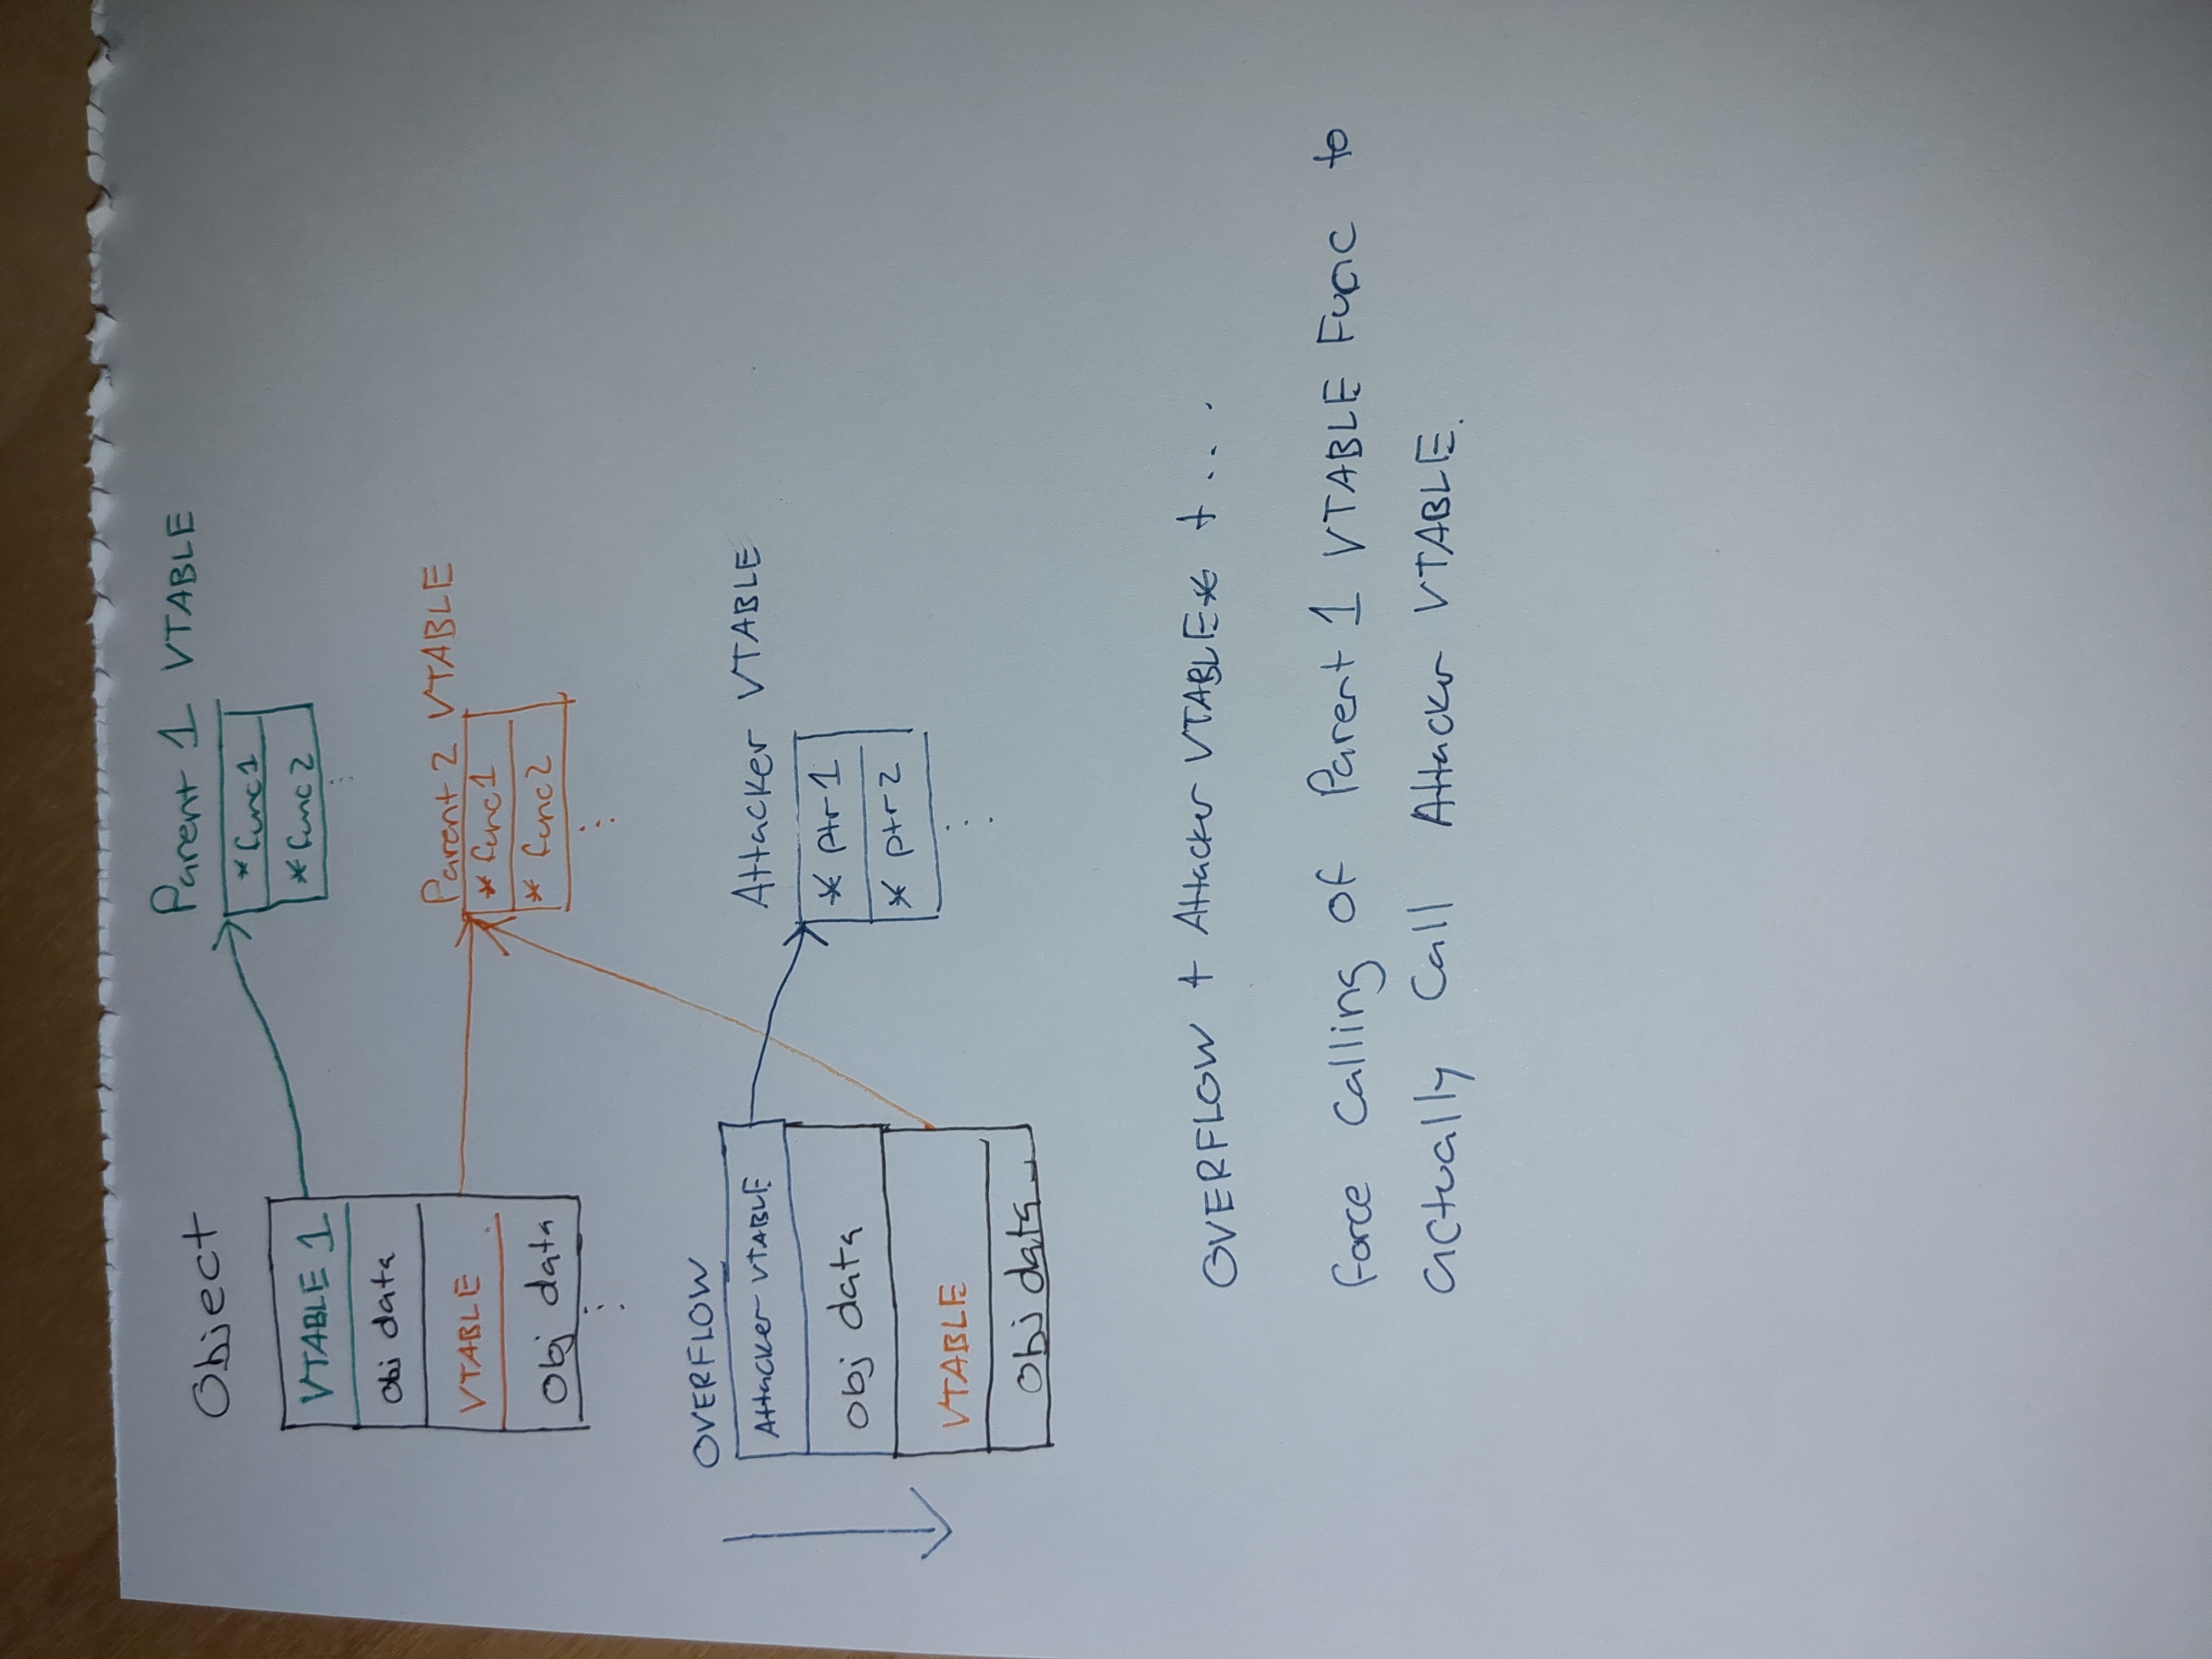 Object
VTABLE 1
Obj data
VTABLE
Obj data
Parent 1 VTABLE
*func1
*func2
Parent 2 VTABLE
* func1
* func2
OVERFLOW
Attacker VTABLE
obj data
VTABLE
Obj data
Attacker VTABLE
* ptr1
* ptr2
OVERFLOW + Attacker VTABLE* + ....
Force Calling of Parent 1 VTABLE Func to
actually Call Attacker VTABLE.